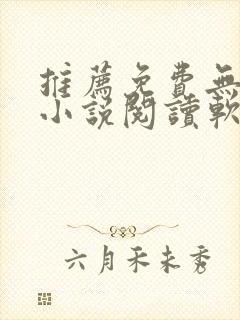 推薦免費無
小說閱讀軟
六月禾未秀